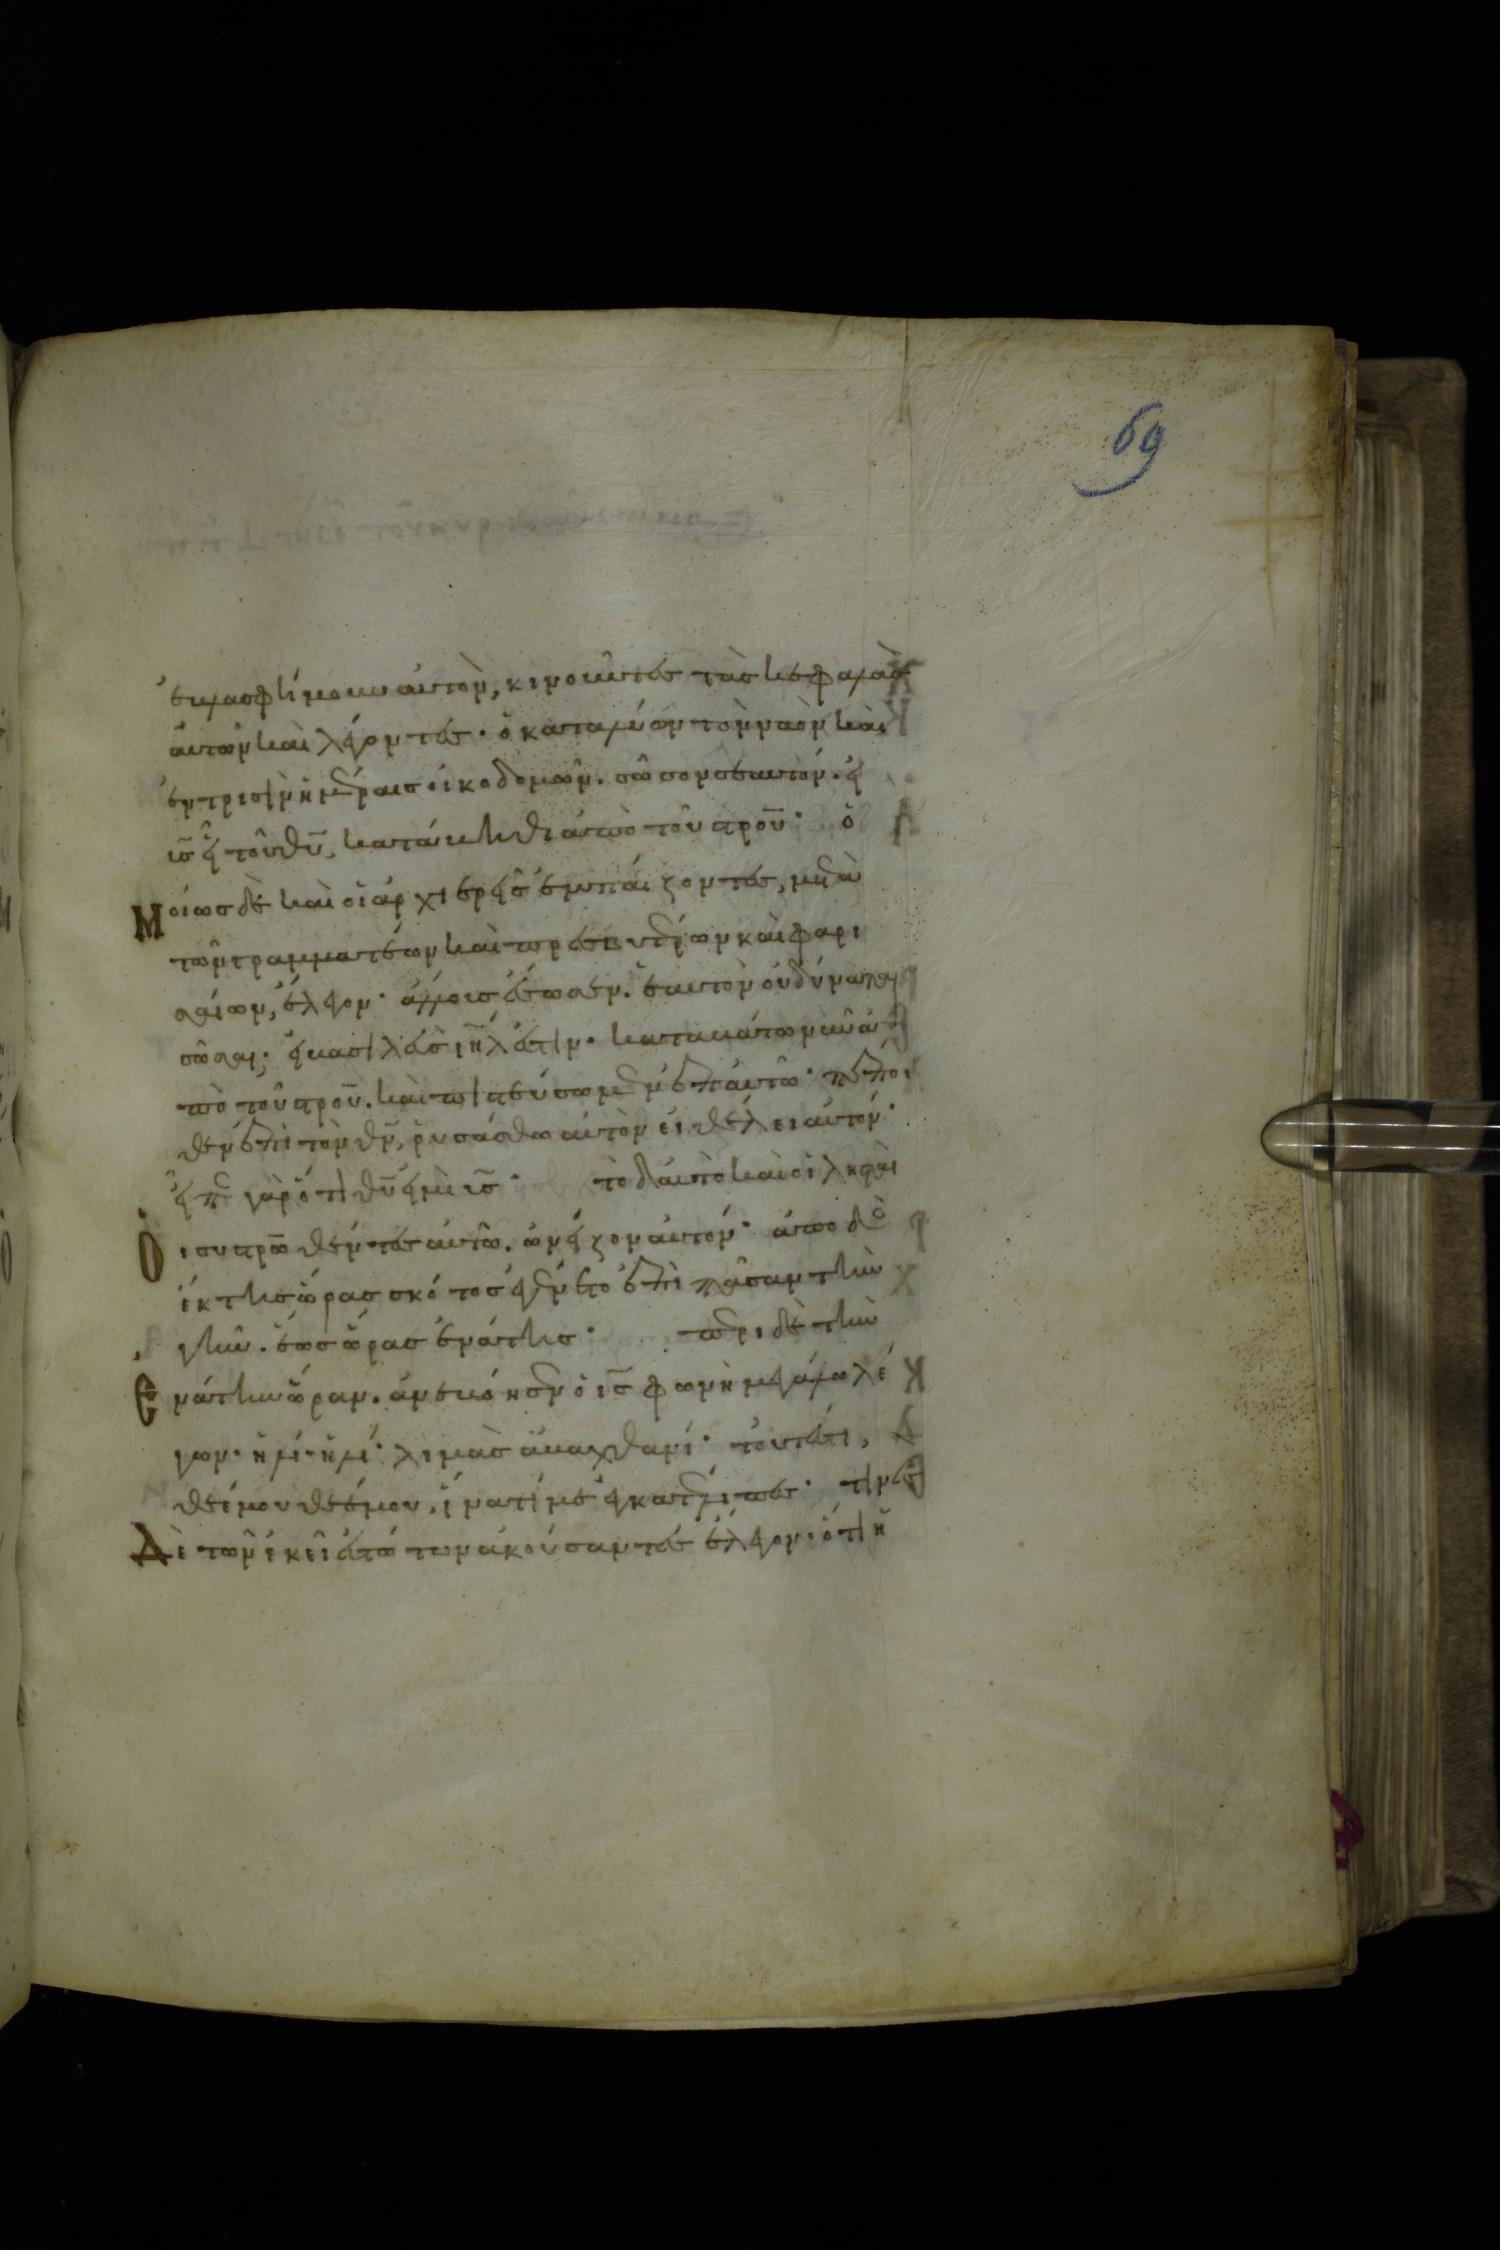 69
ἐβλασφήμουν αὐτὸν, κινοῦντες τὰς κεφαλὰς
ἀυτῶν καὶ λέγοντες· ὁ καταλύων τὸν ναὸν καὶ
ἐν τρισὶν ἡμέραις οἰκοδομῶν. σῶσον σεαυτόν. εἰ
υ̅ς̅ εἶ τοῦ θ̅υ̅, κατάβηθι ἀπὸ τοῦ σ̅ρ̅ο̅υ̅· ὁ
Μοίως δὲ καὶ οἱ ἀρχιερεῖς ἐμπαίζοντες, μετὰ
τῶν γραμματέων καὶ πρεσβυτέρων καὶ φαρι
σαίων, ἔλεγον· ἄλλους ἔσωσεν. ἑαυτὸν οὐ δύναται
σῶσαι· εἰ βασιλεὺς ι̅η̅λ̅ ἐστὶν. καταβάτω νῦν ἀ
πὸ τοῦ σ̅ρ̅ο̅υ̅. καὶ πιστεύσωμεν ἐπ' αὐτῷ· πέποι
θεν ἐπὶ τὸν θ̅ν̅, ῥυσάσθω αὐτὸν εἰ θέλει αὐτόν·
εἶπε γὰρ ὅτι θ̅υ̅ εἰμὶ υ̅ς̅· τὸ δ' αὐτὸ καὶ οἱ λησταὶ
Οἱ συσ̅ρ̅ω̅θέντες αὐτῷ. ὠνείζον αὐτόν· ἀπὸ δὲ
ἕκτης ὥρας σκότος ἐγένετο ἐπὶ πᾶσαν τὴν
γῆν. ἕως ὥρας ἐνάτης· περὶ δὲ τὴν
Ενάτην ὥραν. ἀνεβόησεν ὁ ι̅ς̅ φωνῇ μεγάλῃ λέ
γων· ἠλί· ἠλί· λιμὰς αβαχθανί· τουτέστι,
θεέ μου θεέ μου, ἵνατί με ἐγκατέλιπες· τινὲς
Δὲ τῶν ἐκεῖ ἑστώτων ἀκούσαντες ἔλεγον· ὅτι ἠ